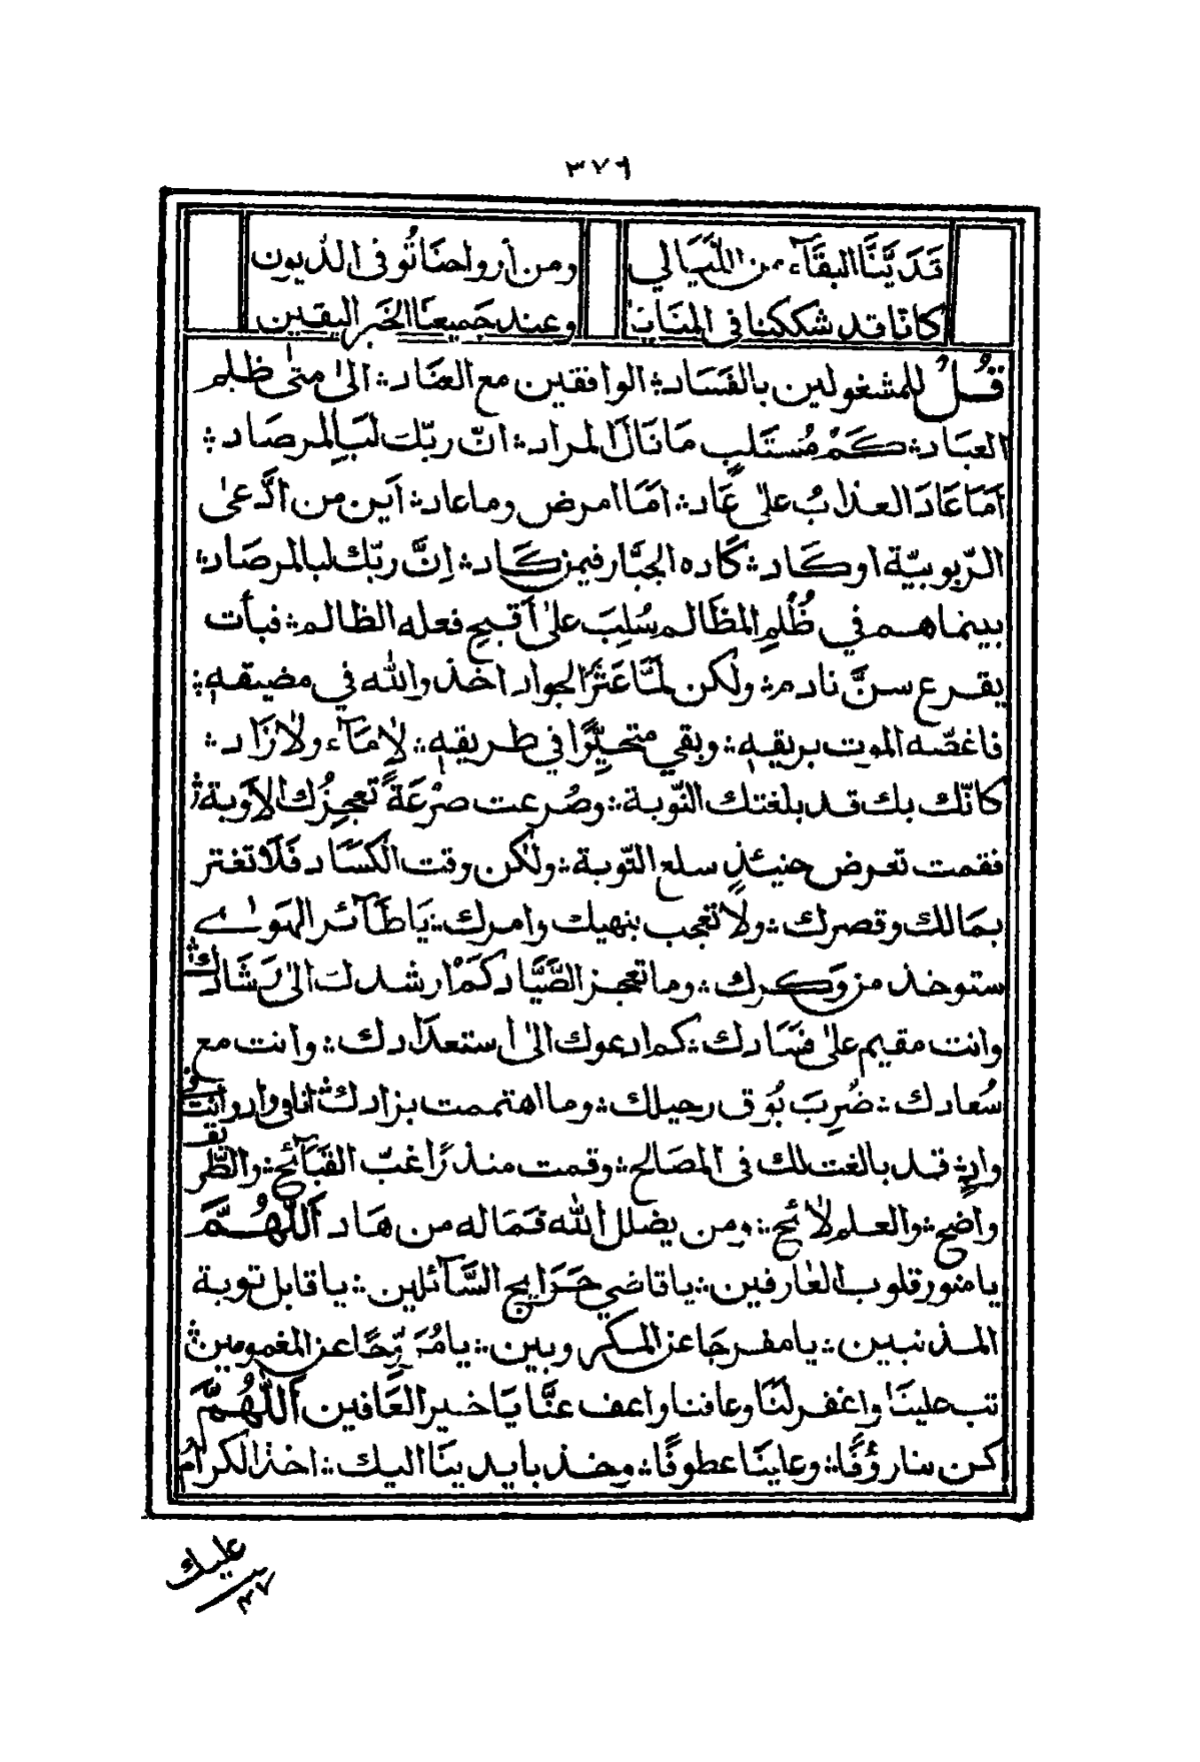 ٣٧٦
قَدَيَّنَّا البقَآء من اللَّيَالي ومن أرواحنَا تُوفى الدّيون
كانّا قد شككنا فى المنَايَا وعند جميعنَا الخَبر اليقين
قُلْ للمشغولين بالفَسَاد ؞ الوافقين مع العنَاد ؞ الىٰ متىٰ ظلم
العبَاد ؞ كَمْ مُستَلَبٍ مَا نَالَ المراد ؞ انّ ربّك لبَالمرصَاد ؞
اَمَا عَادَ العذابُ علىٰ عَاد ؞ امَا امرض وما عاد ؞ اَين من ادَّعىٰ
الرّبوبيّة او كَاد ؞ كَاده الجبَّار فيمن كَاد ؞ اِنَّ ربّك لبالمرصَاد ؞
بينما هم في ظُلَمِ المظَالم سُلِبَ علىٰ أقبحِ فعله الظالم ؞ فبأت
يقرع سنَّ نادم ؞ ولٰكن لمّا عَثَرَ الجواد اخذ والله في مضيقهٖ ؞
فاغصّه الموت بريقهٖ ؞ وبقي متحيِّرًا في طريقهٖ ؞ لا مَآء ولا زَاد ؞
كانّك بك قد بلغتك النّوبة ؞ وصُرعت صرْعَةً تعجِزُك الاَوبة ؞
فقمت تعرض حنيئذٍ سلع التّوبة ؞ ولٰكن وقت الكسَاد فَلَا تغتر
بمَالك وقصرك ؞ ولَا تعجب بنهيك وامرك ؞ يَا طَآئر الهوٰے
ستوخذ من وَكرك ؞ وما تعجز الصَّيَّاد كَمْ ارشدك الىٰ رَشَادك ؞
وانت مقيم علىٰ فسَادك ؞ كم ادعوك الىٰ استعدَادك ؞ وانت مع
سُعادك ؞ ضُرِبَ بُوق رحيلك ؞ وما اهتممت بزادك ؞ انا فى وادٍ وانت فى
وادٍ ؞ قد بالغت لك فى المصَالح ؞ وقمت منذرًا غبّ القبَآئح ؞ والطَّريق
واضح ؞ والعلم لَائح ؞ ومن يضلل الله فمَا له من هَاد اَللّٰهُمَّ
يا منور قلوب العارفين ؞ يا قاضي حَوَايج السَّآئلين ؞ يا قابل توبة
المذنبين ؞ يا مفرجَا عن المكروبين ؞ يا مُرَيِّحًا عن المغمومين ؞
تب علينَا واغفر لنَا وعافنا واعف عنَّا يَا خير العَافين اَللّٰهُمَّ
كن بنا رؤُفًا ؞ وعلينَا عطوفًا ؞ وخذ بايدينَا اليك ؞ اخذ الكرام
عليك